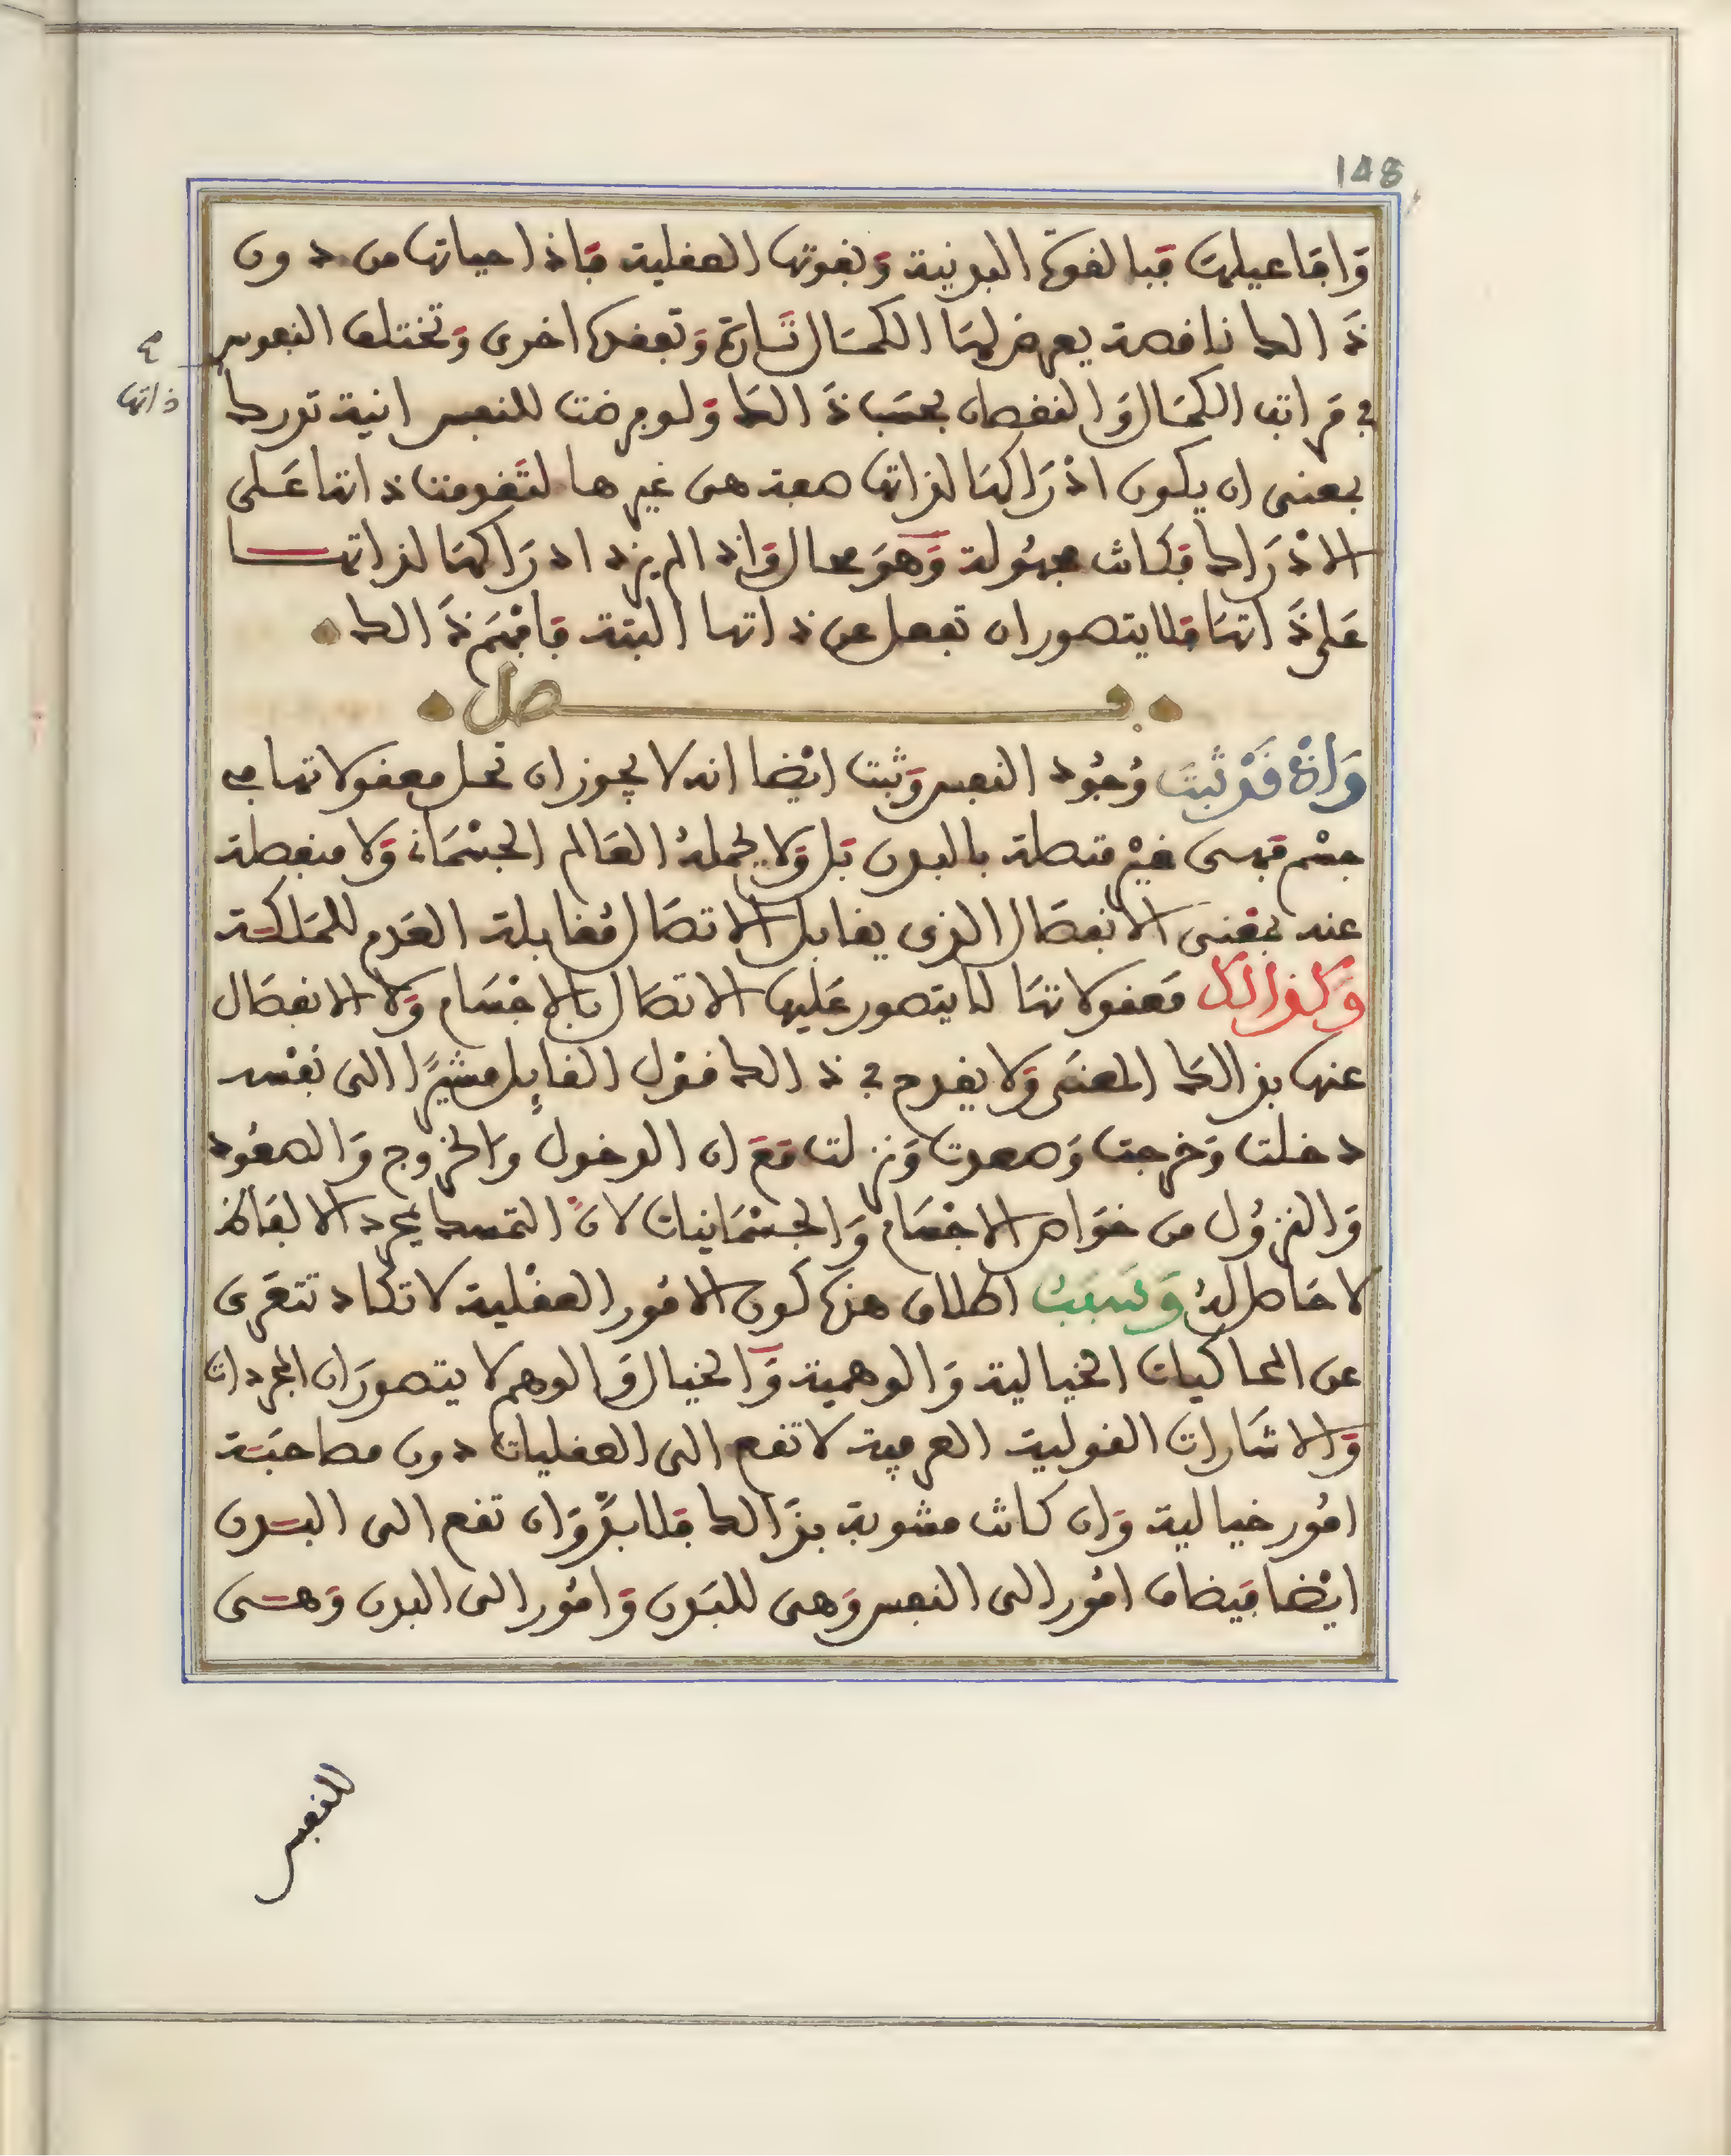 148
وافاعيلها فبالقوة البدنية وبقوتها العقلية فاذا حياتها من دون
ذالك ناقصة يعرض لها الكمال تارة وتفقده اخرى وتختلف النفوس
ذاتها
في مراتب الكمال والنقصان بحسب ذالك ولو فرضت للنفس انية تدرك
بمعنى ان يكون ادراكها لذاتها صفة هى غيرها لتقدمت ذاتها على
الادراك فكانت مجهولة وهو محال واذا لم يزد ادراكها لذاتها
على ذاتها فلا يتصور ان تغفل عن ذاتها البتة فافهم ذالك
فصل
واذ قد ثبت وجود النفس وثبت ايضا انه لا يجوز ان تحل معقولاتها في
جسم فهى غير متصلة بالبدن بل ولا بجملة العالم الجسماني ولا منفصلة
عنه بمعنى الانفصال الذى يقابل الاتصال مقابلة العدم للملكة
وكذالك معقولاتها لا يتصور عليها الاتصال بالاجسام ولا الانفصال
عنها بذالك المعنى ولا يقدح في ذالك قول القايل مشيرا الى نفسه
دخلت وخرجت وصعدت ونزلت مع ان الدخول والخروج والصعود
والنزول من خواص الاجسام والجسمانيات لان التمسك بمجرد الالفاظ
لا حاصل له وسبب اطلاق هذه كون الامور العقلية لا تكاد تتعرى
عن المحاكيات الخيالية والوهمية والخيال والوهم لا يتصوران المجردات
والاشارات القولية العرفية لا تقع الى العقليات دون مصاحبة
امور خيالية وان كانت مشوبة بذالك فلا بد وان تقع الى البدن
ايضا فيضاف امور الى النفس وهى للبدن وامور الى البدن وهى
للنفس